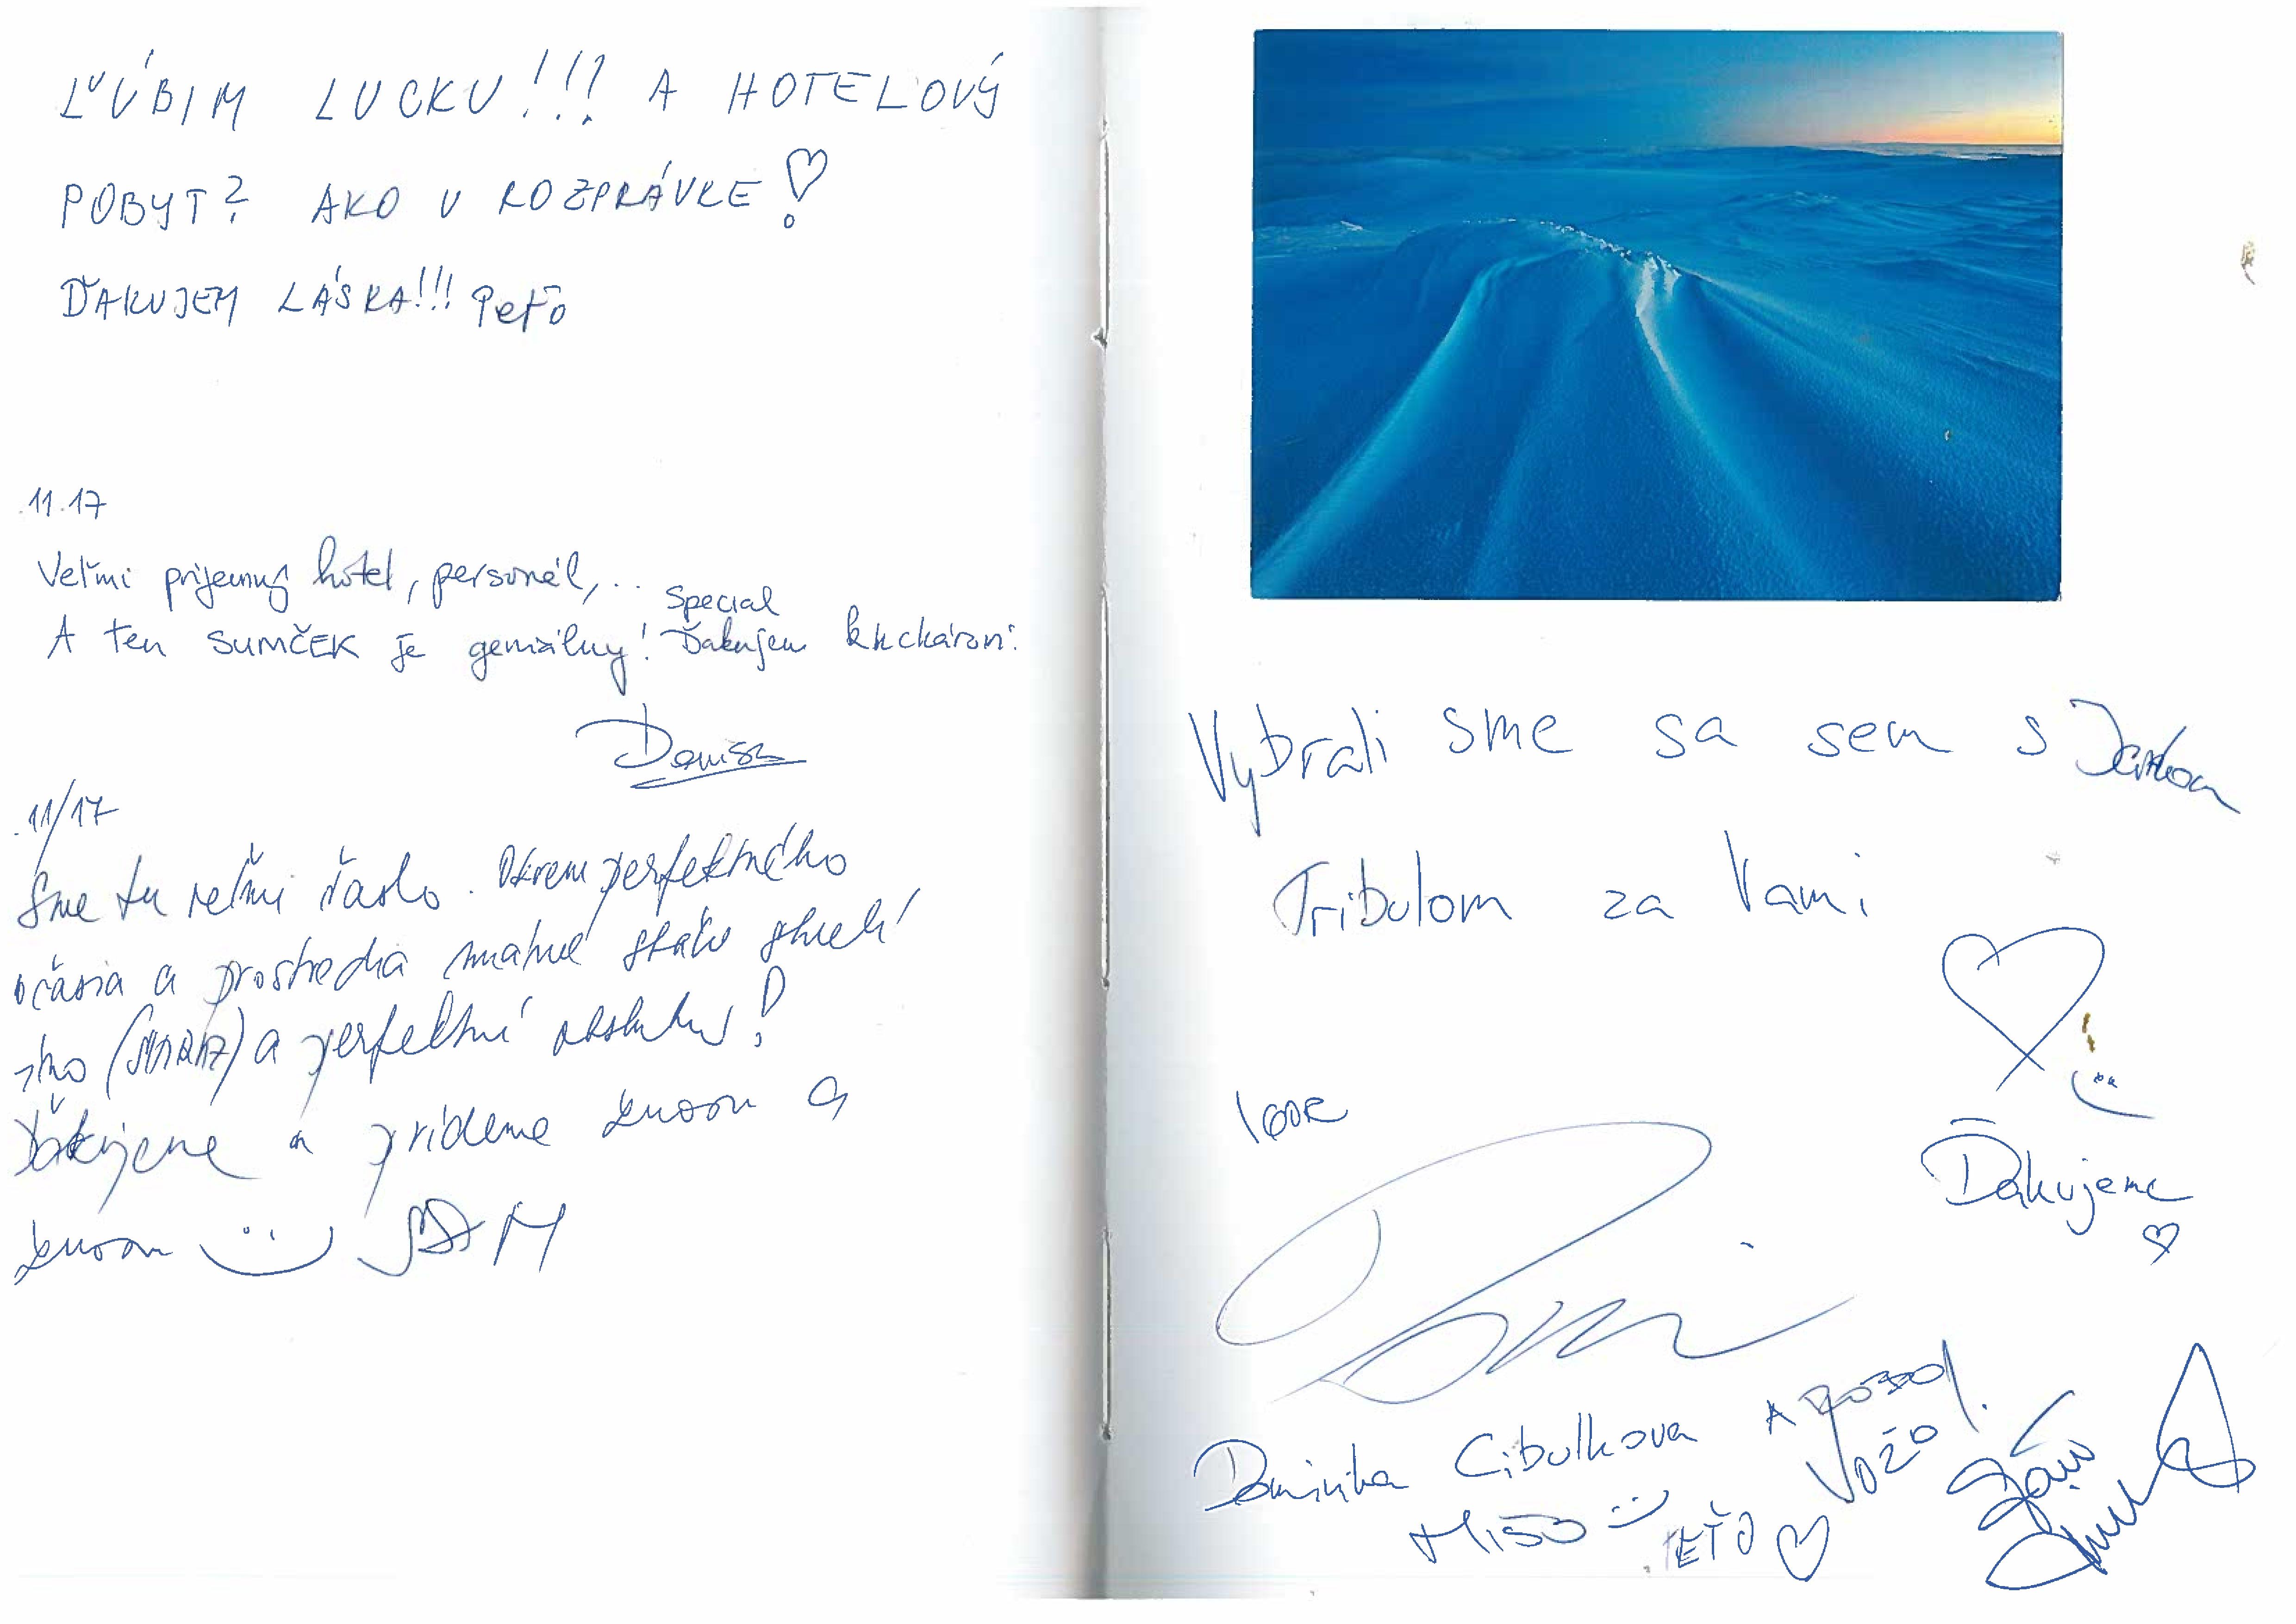 ĽÚBIM LUCKU!!! A HOTELOVÝ
POBYT? AKO V ROZPRÁVKE!
ĎAKUJEM LÁSKA!!! Peťo
.11.17
Veľmi príjemný hotel, personál,..
A ten SUMČEK je geniálny! Special Ďakujem kuchárovi.
Denisa
.11/17
Sme tu veľmi často. Okrem perfektného
počasia a prostredia
a perfektnú obsluhu!
Ďakujeme a prídeme znova a
znova
Vybrali sme sa sem s Jankou
Tribulom za Vami
Ďakujeme
IGOR
Dominika Cibulkova A
MIŠO
VOŽO
PEŤO